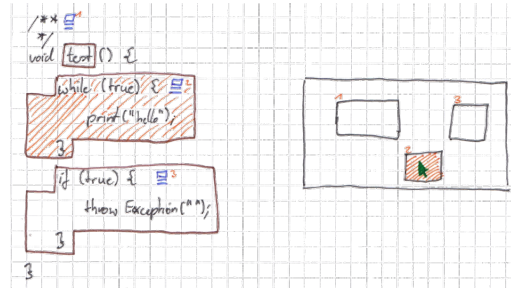 /** 1
*/
void test () {
while (true) { 2
print("hello");
}
if (true) { 3
throw Exception("");
}
}
1
3
2